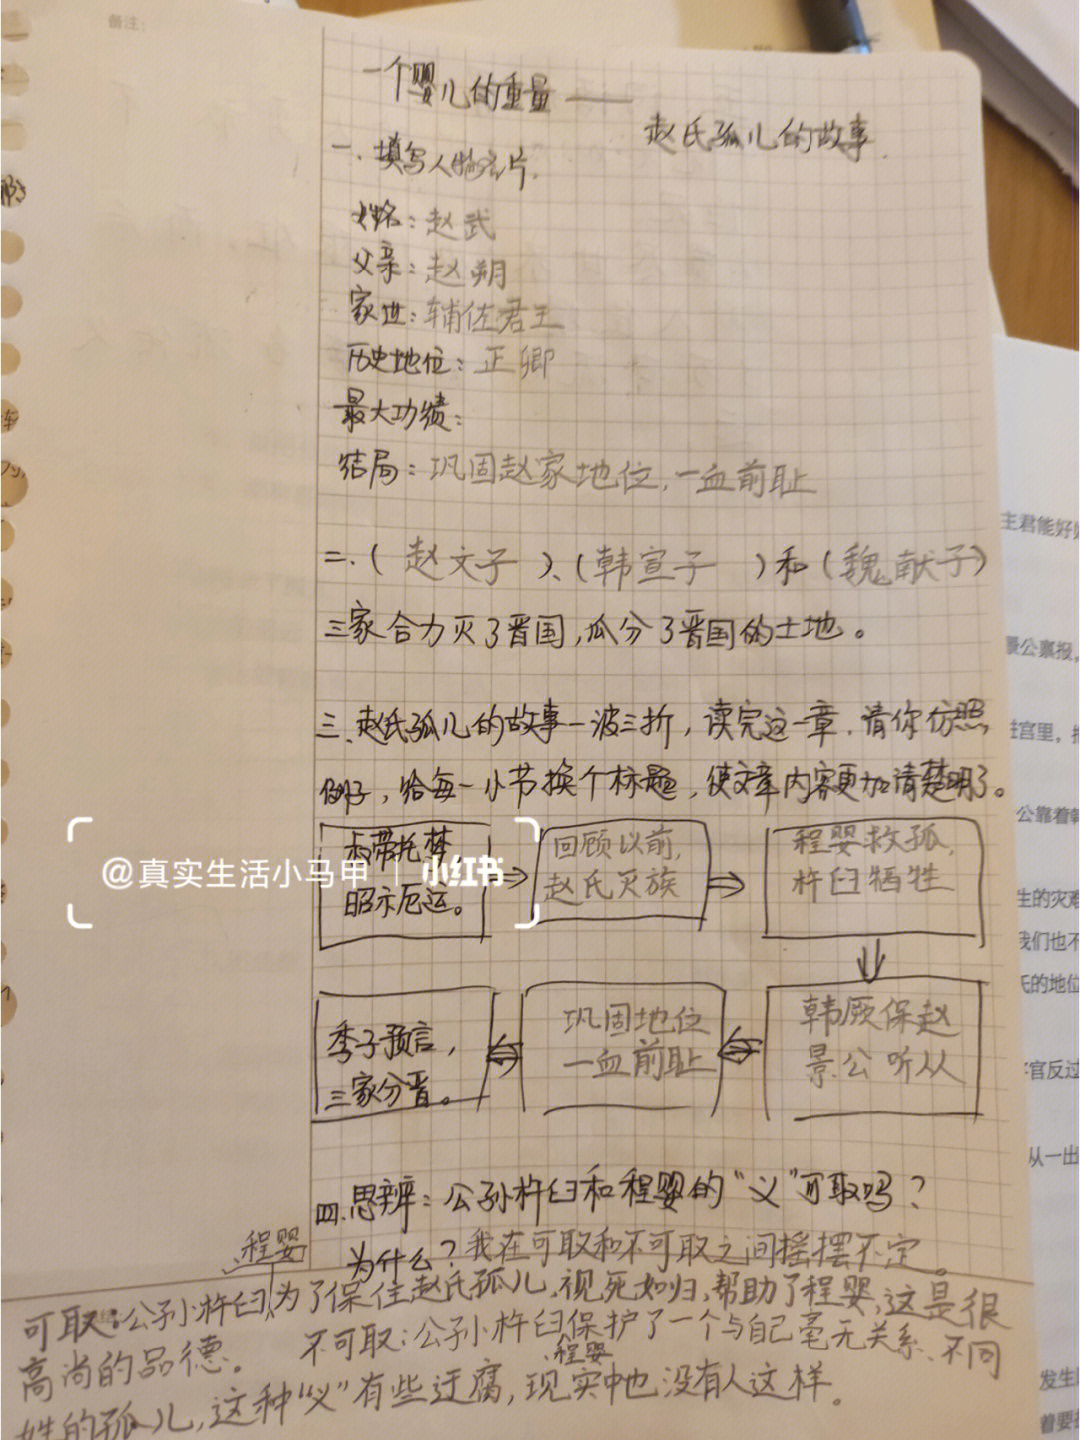 备注:
一个婴儿的重量——
赵氏孤儿的故事.
一.填写人物名片.
姓名:赵武
父亲:赵朔
家世:辅佐君王
历史地位:正卿
最大功绩:
结局:巩固赵家地位,一血前耻
二、(赵文子)、(韩宣子)和(魏献子)
三家合力灭了晋国,瓜分了晋国的土地。
三、赵氏孤儿的故事一波三折,读完这一章.请你仿照
例子,给每一小节换个标题,使文章内容更加清楚明了。
叔带托梦
昭示厄运。
回顾以前,
赵氏灭族
程婴救孤,
杵臼牺牲
韩厥保赵
景公听从
巩固地位
一血前耻
季子预言,
三家分晋。
@真实生活小马甲 | 小红书
四.思辨:公孙杵臼和程婴的“义”可取吗?
为什么?我在可取和不可取之间摇摆不定。
程婴
可取:公孙杵臼为了保住赵氏孤儿,视死如归,帮助了程婴,这是很
高尚的品德。 不可取:公孙杵臼保护了一个与自己毫无关系、不同
程婴
姓的孤儿,这种“义”有些迂腐,现实中也没有人这样。
主君能好
景公禀报,
主宫里,
公靠着韩
生的灾难
我们也不
氏的地位
官反过
从一出
发生
着要